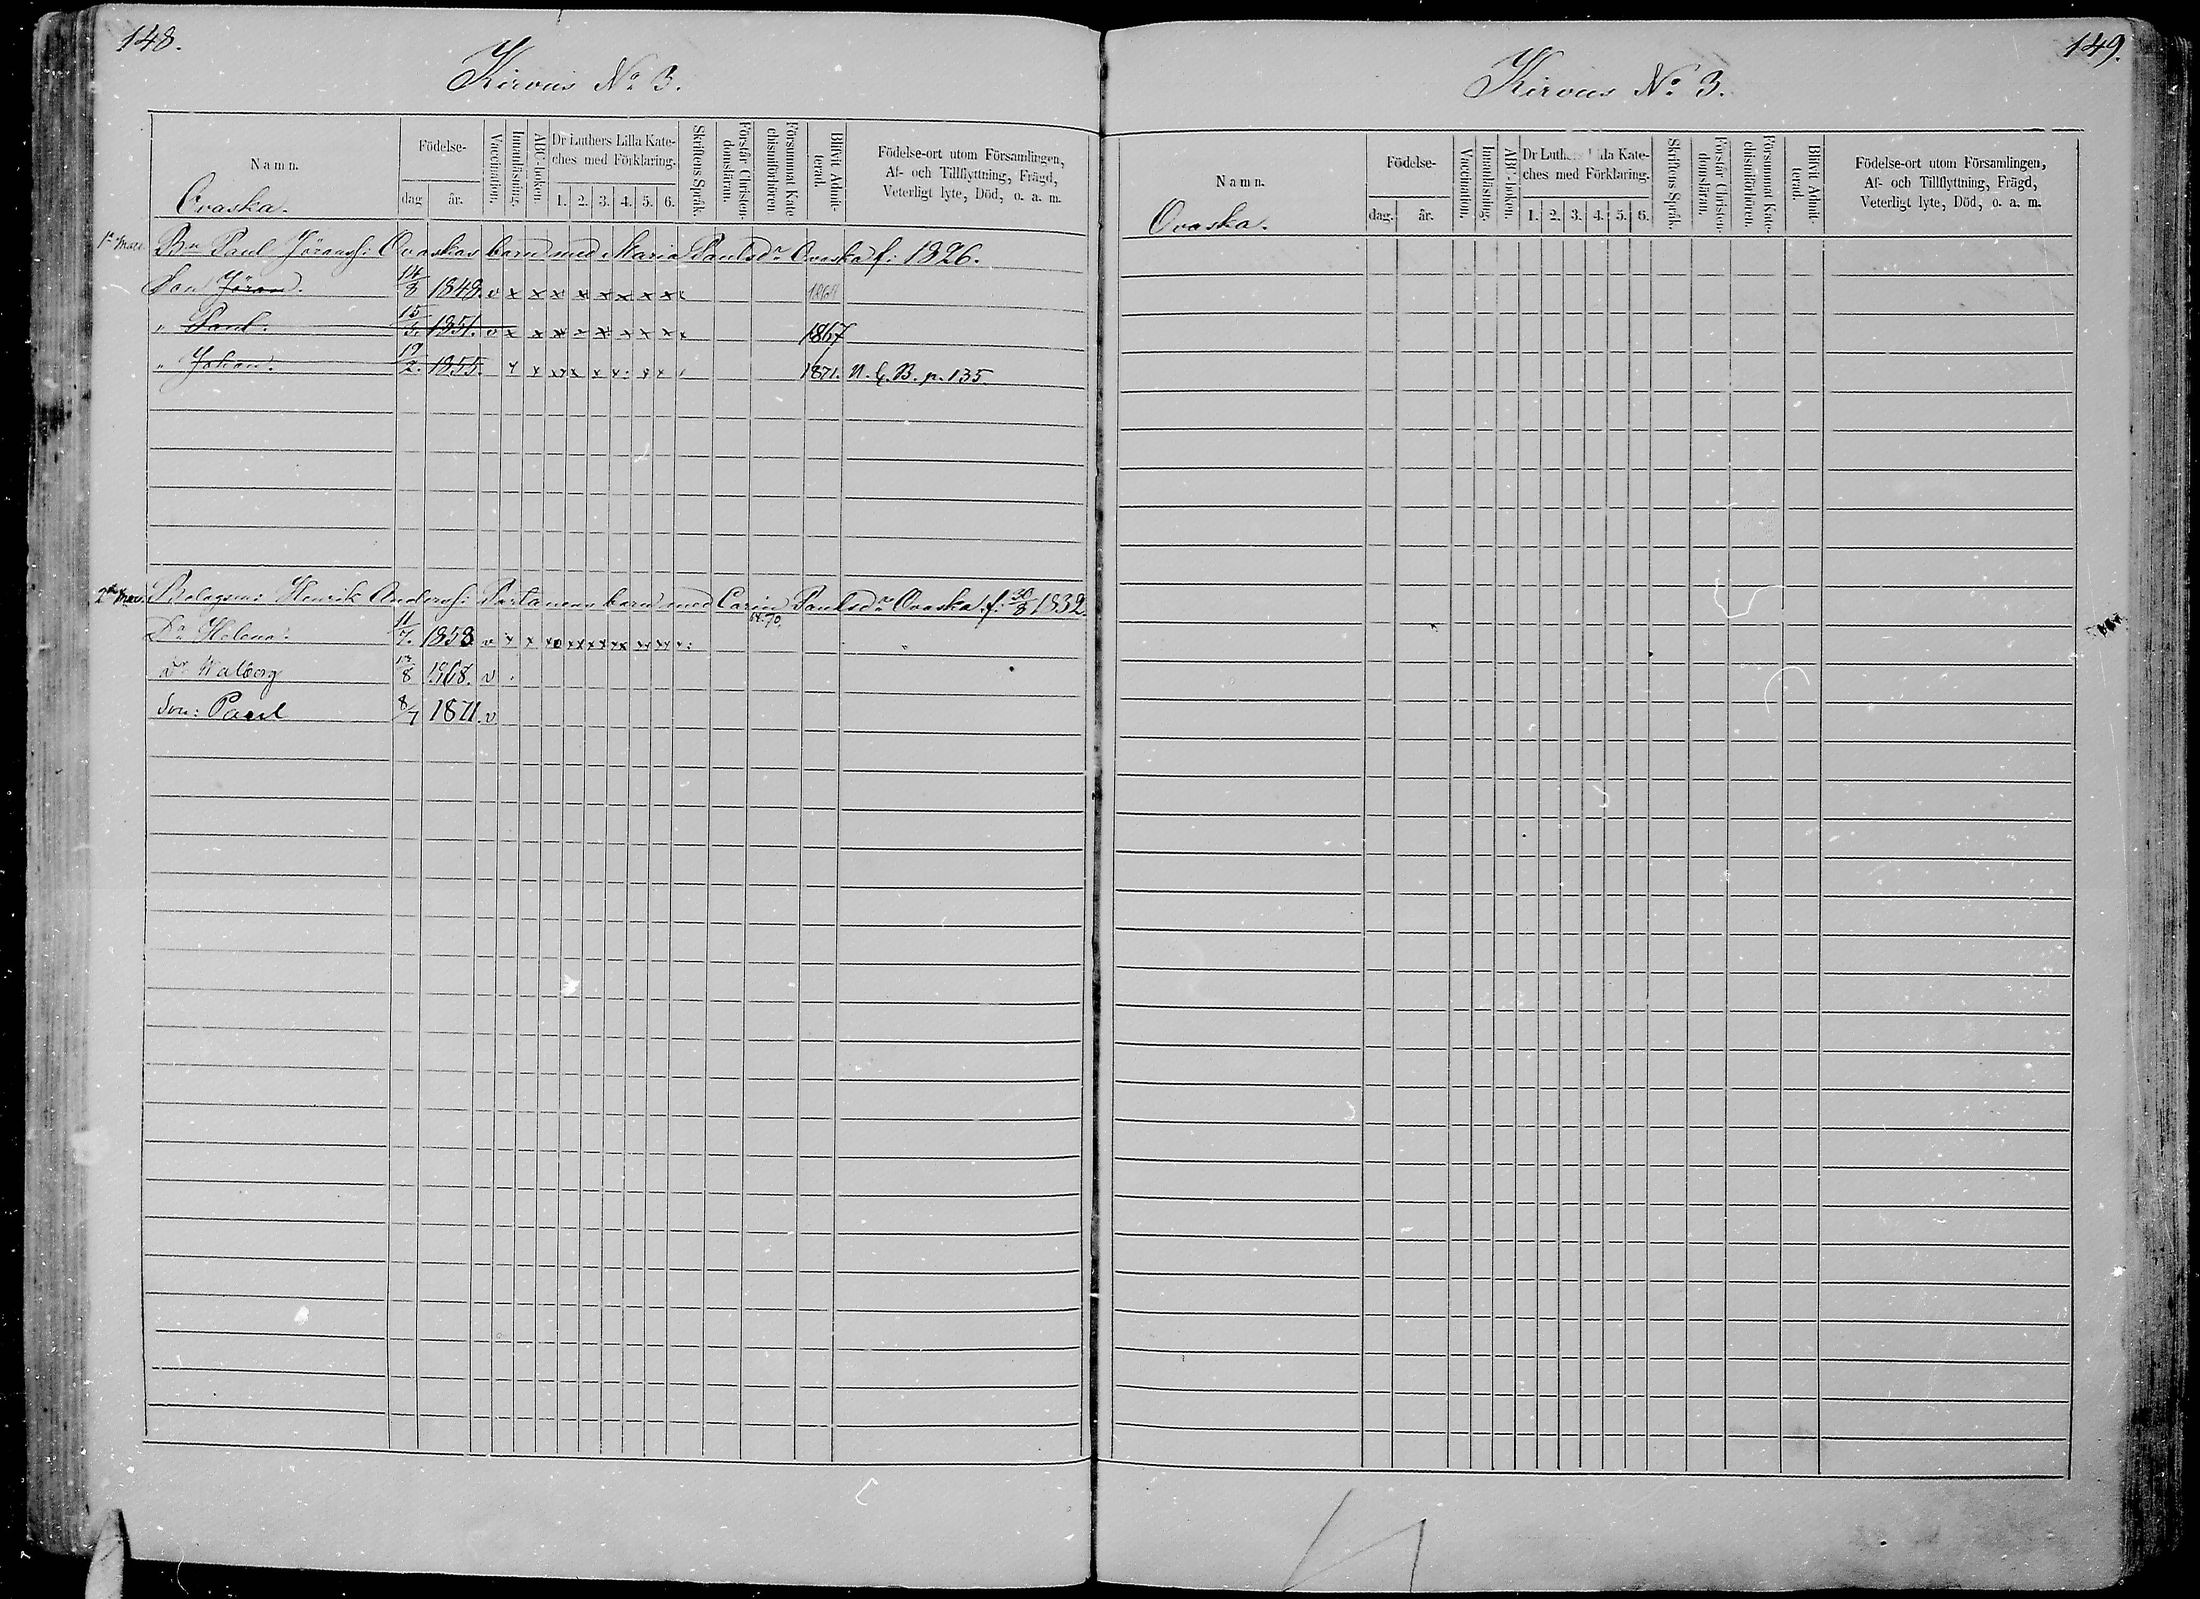 148.
Kirvus No 3.
Namn.
Födelse-
dag
år.
Vaccination.
Innanläsning.
ABC-boken.
Dr Luthers Lilla Kate-
ches med Förklaring.
1. 2. 3. 4. 5. 6.
Skriftens Språk.
Förstår Christen-
domsläran.
Försummat Kate-
chismiförhören.
Blifvit Admit-
terad.
Födelse-ort utom Församlingen,
Af- och Tillflyttning, Frägd,
Veterligt lyte, Död, o. a. m.
Ovaska.
Bn Paul Jöransf: Ovaskas barn med Maria Paulsdr Ovaska f: 1826.
Son Jöran. 14/8 1848. v x x x x x x x x
" Paul. 15/5. 1851. v x x x x x x x 1867
" Johan. 19/2. 1855. x x x x x x x x 1871. N. C. B. p. 135.
Bolagsm: Henrik Andersf: Partanens barn med Carin Paulsdr Ovaska f: 30/8 1832
Dr Helena. 11/7. 1858 v x x 64. 70.
Dr Walborg 13/8 1868. v
Son: Paul 8/7 1871. v
149.
Kirvus No 3.
Namn.
Födelse-
dag.
år.
Vaccination.
Innanläsning.
ABC-boken.
Dr Luthers Lilla Kate-
ches med Förklaring.
1. 2. 3. 4. 5. 6.
Skriftens Språk.
Förstår Christen-
domsläran.
Försummat Kate-
chismiförhören.
Blifvit Admit-
terad.
Födelse-ort utom Församlingen,
Af- och Tillflyttning, Frägd,
Veterligt lyte, Död, o. a. m.
Ovaska.